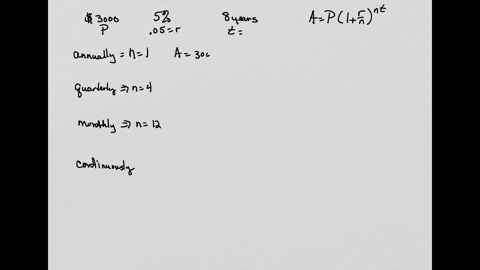 $3000 5% 8 years A=P(1+r/n)^nt
P .05=r t=
annually = n=1 A=300
quarterly ⇒ n=4
monthly ⇒ n=12
continuously